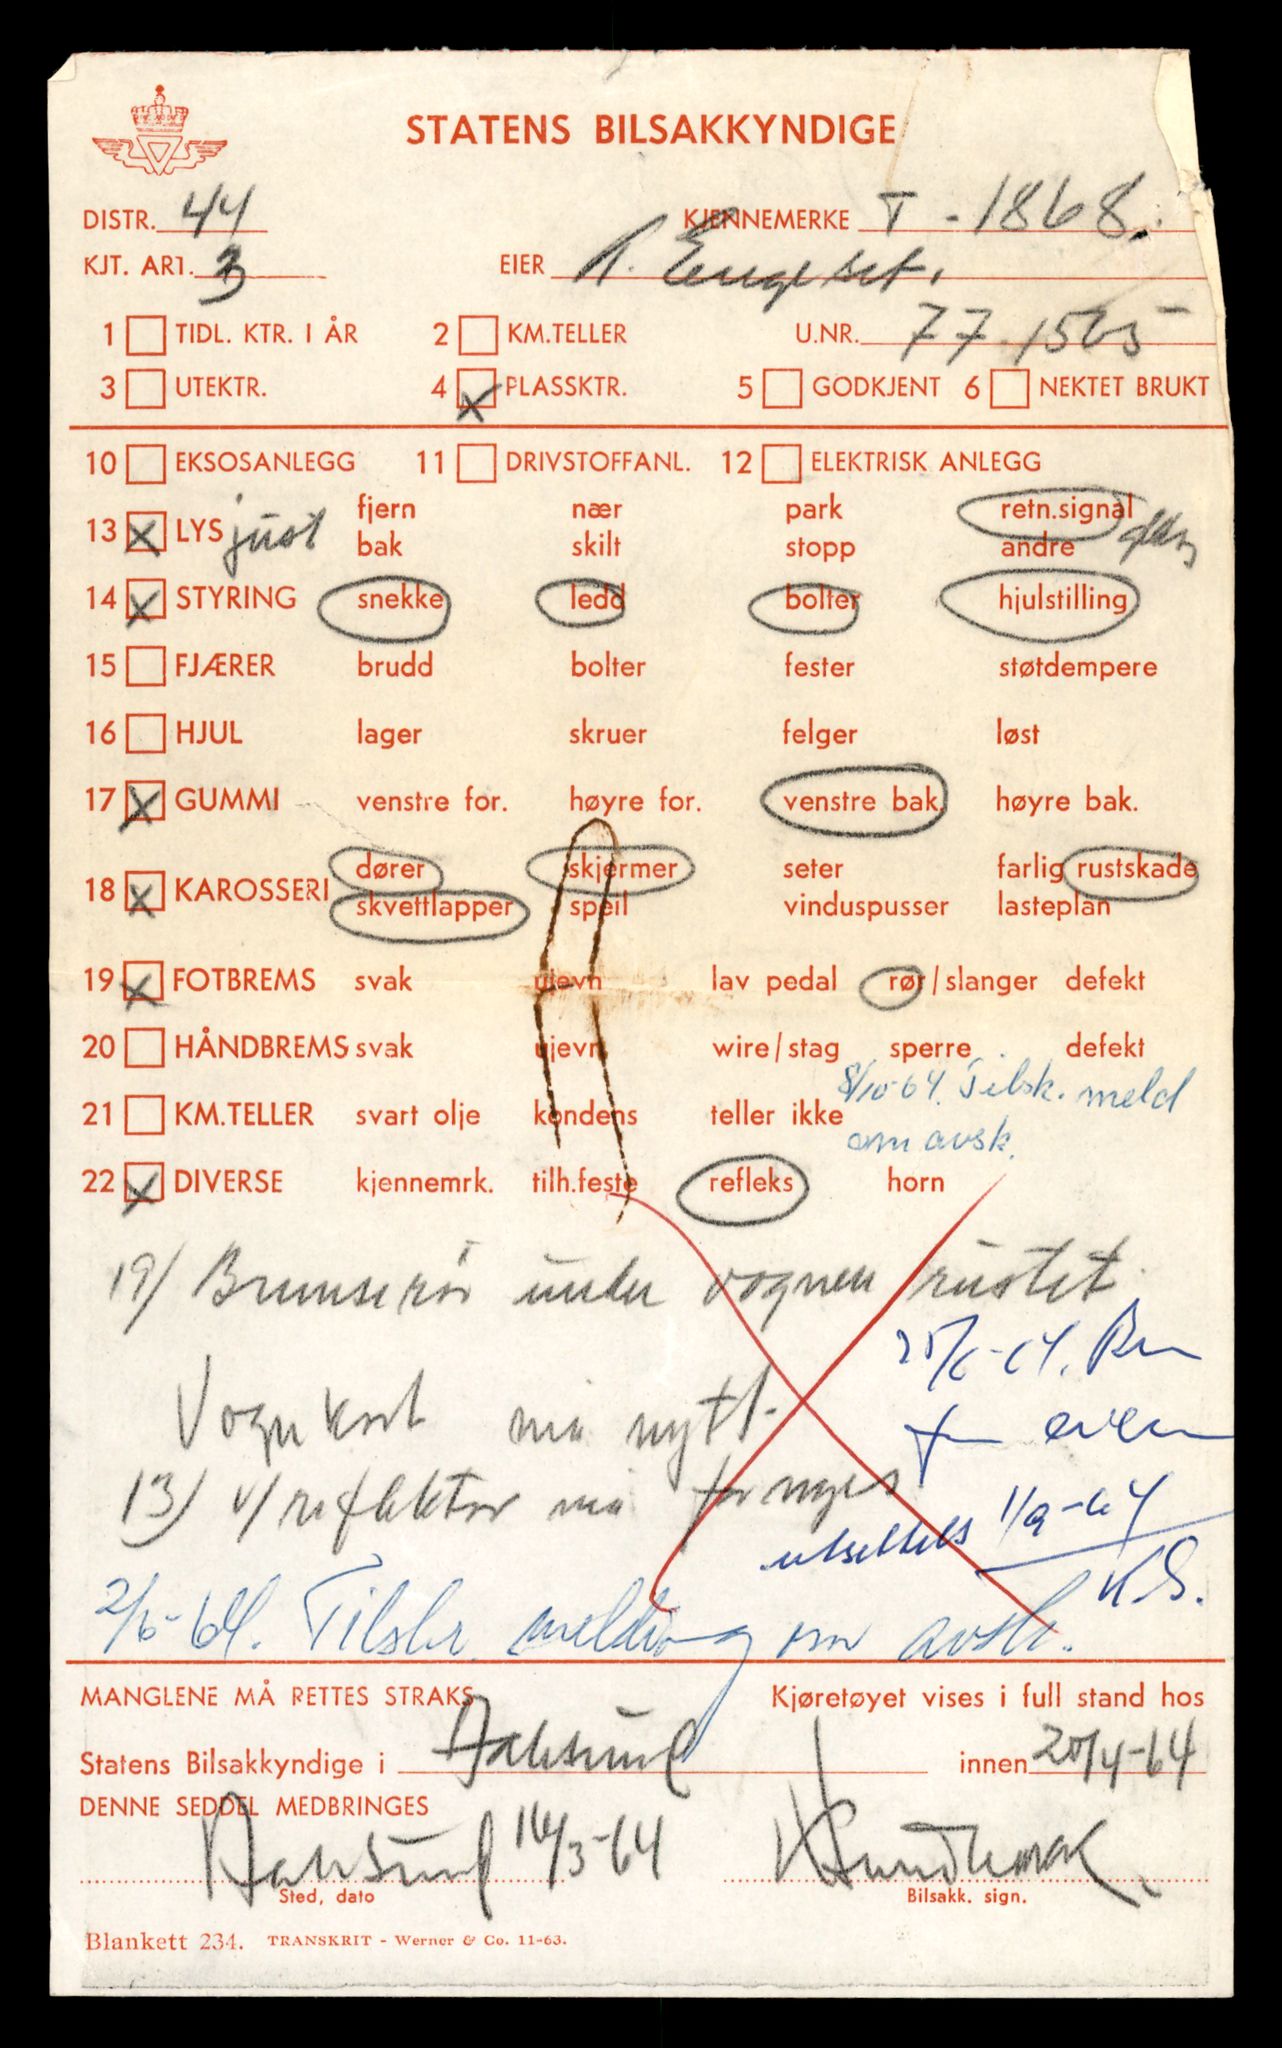 STATENS BILSAKKYNDIGE
DISTR. 44 KJENNEMERKE T - 1868.
KJT. ART. 3 EIER Engeset.
1 TIDL. KTR. I ÅR 2 KM.TELLER U.NR. 77.1565
3 UTEKTR. 4 X PLASSKTR. 5 GODKJENT 6 NEKTET BRUKT
10 EKSOSANLEGG 11 DRIVSTOFFANL. 12 ELEKTRISK ANLEGG
fjern nær park retn.signal
13 X LYS just
bak skilt stopp andre
14 X STYRING snekke ledd bolter hjulstilling
15 FJÆRER brudd bolter fester støtdempere
16 HJUL lager skruer felger løst
17 X GUMMI venstre for. høyre for. venstre bak. høyre bak.
dører skjermer seter farlig rustskade
18 X KAROSSERI
skvettlapper speil vinduspusser lasteplan
19 X FOTBREMS svak ujevn lav pedal rør/slanger defekt
20 HÅNDBREMS svak ujevn wire/stag sperre defekt
8/10-64. Tilsk. meld
21 KM.TELLER svart olje kondens teller ikke
om avsk.
22 X DIVERSE kjennemrk. tilh.feste refleks horn
19/ Bremserør under vognen rustet.
Vognkort må nytt.
13) v/reflektor må fornyes
utsettes 1/9-64
K.S.
2/6-64. Tilskr. melding om avsk.
MANGLENE MÅ RETTES STRAKS Kjøretøyet vises i full stand hos
Statens Bilsakkyndige i Aalesund innen 20/4-64
DENNE SEDDEL MEDBRINGES
Aalesund 16/3-64
Sted, dato Bilsakk. sign.
Blankett 234. TRANSKRIT - Werner & Co. 11-63.